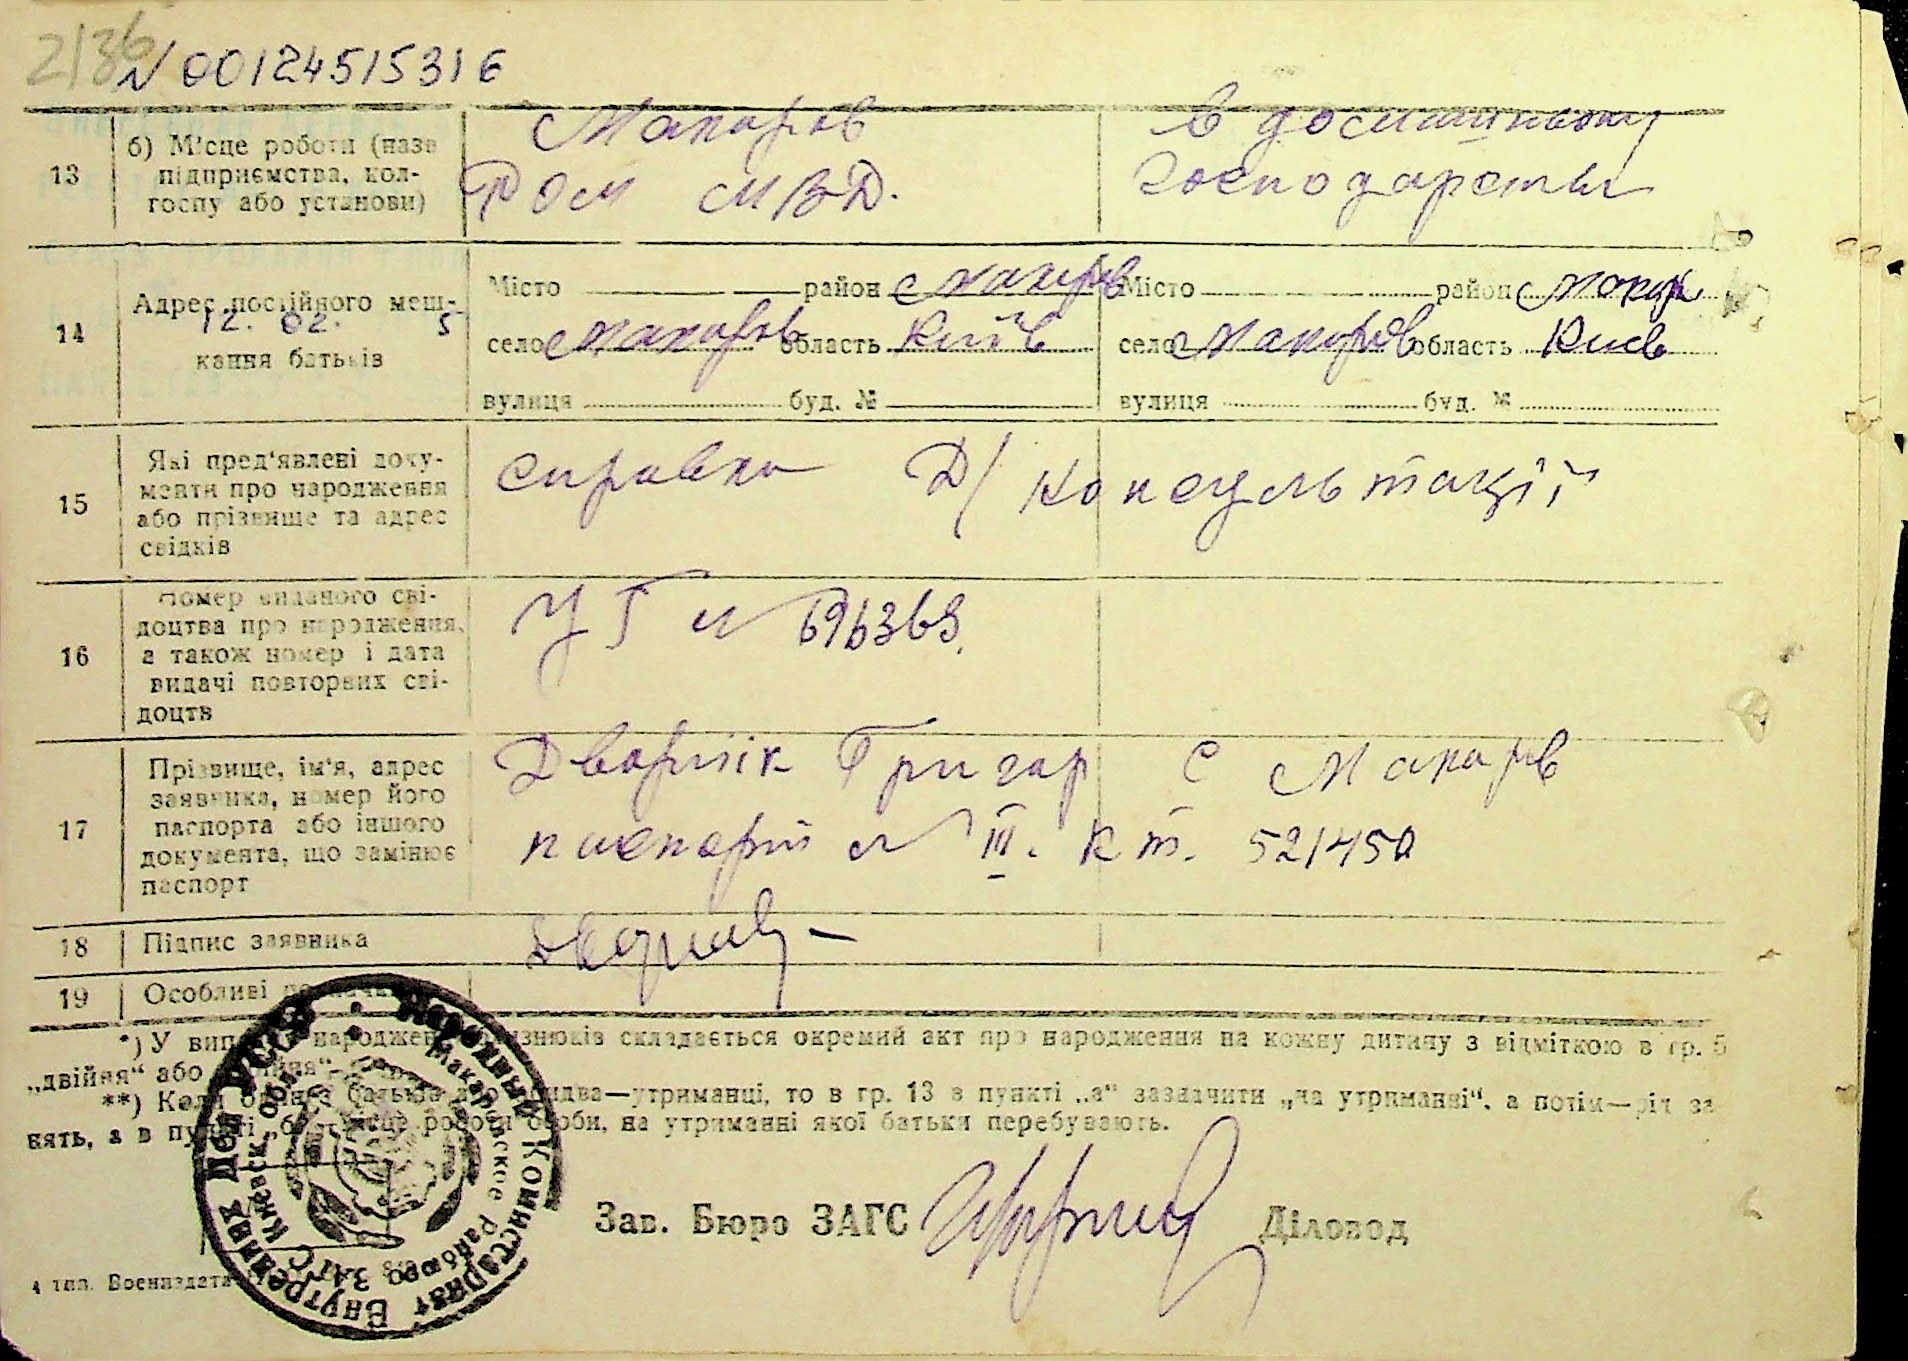 2136
N 00124515316
13
б) Місце роботи (назв
підприємства, кол-
госпу або установи)
Макаров
РОМ МВД.
в домашньому
господарстві
14
Адрес постійного меш-
12. 02. 5
кання батьків
Місто район Макарів
село Макаров область Київ
вулиця буд. №
Місто район Макар
село Макаров область Киев
вулиця буд. №
15
Які пред'явлені доку-
менти про народження
або прізвище та адрес
свідків
справка Д/ консультації
16
Номер виданого сві-
доцтва про народження,
а також номер і дата
видачі повторних сві-
доцтв
N 696369.
17
Прізвище, ім'я, адрес
заявника, номер його
паспорта або іншого
документа, що замінює
паспорт
Дворнік Григор с Макарів
паспорт N III. К т. 521450
18
Підпис заявника
19
Особливі
*) У народжен близнюків складається окремий акт про народження на кожну дитину з відміткою в гр. 5
„двійня“ або
**) Коли один з батьків або обидва—утриманці, то в гр. 13 в пункті „а“ зазначити „на утриманні“, а потім—рід за
нять, а в пункті „б“ місце роботи особи, на утриманні якої батьки перебувають.
Народный Комиссариат Внутренних Дел УССР
Макаровское Райбюро ЗАГС Киевск. Обл.
Зав. Бюро ЗАГС Діловод
4 тип. Воениздата